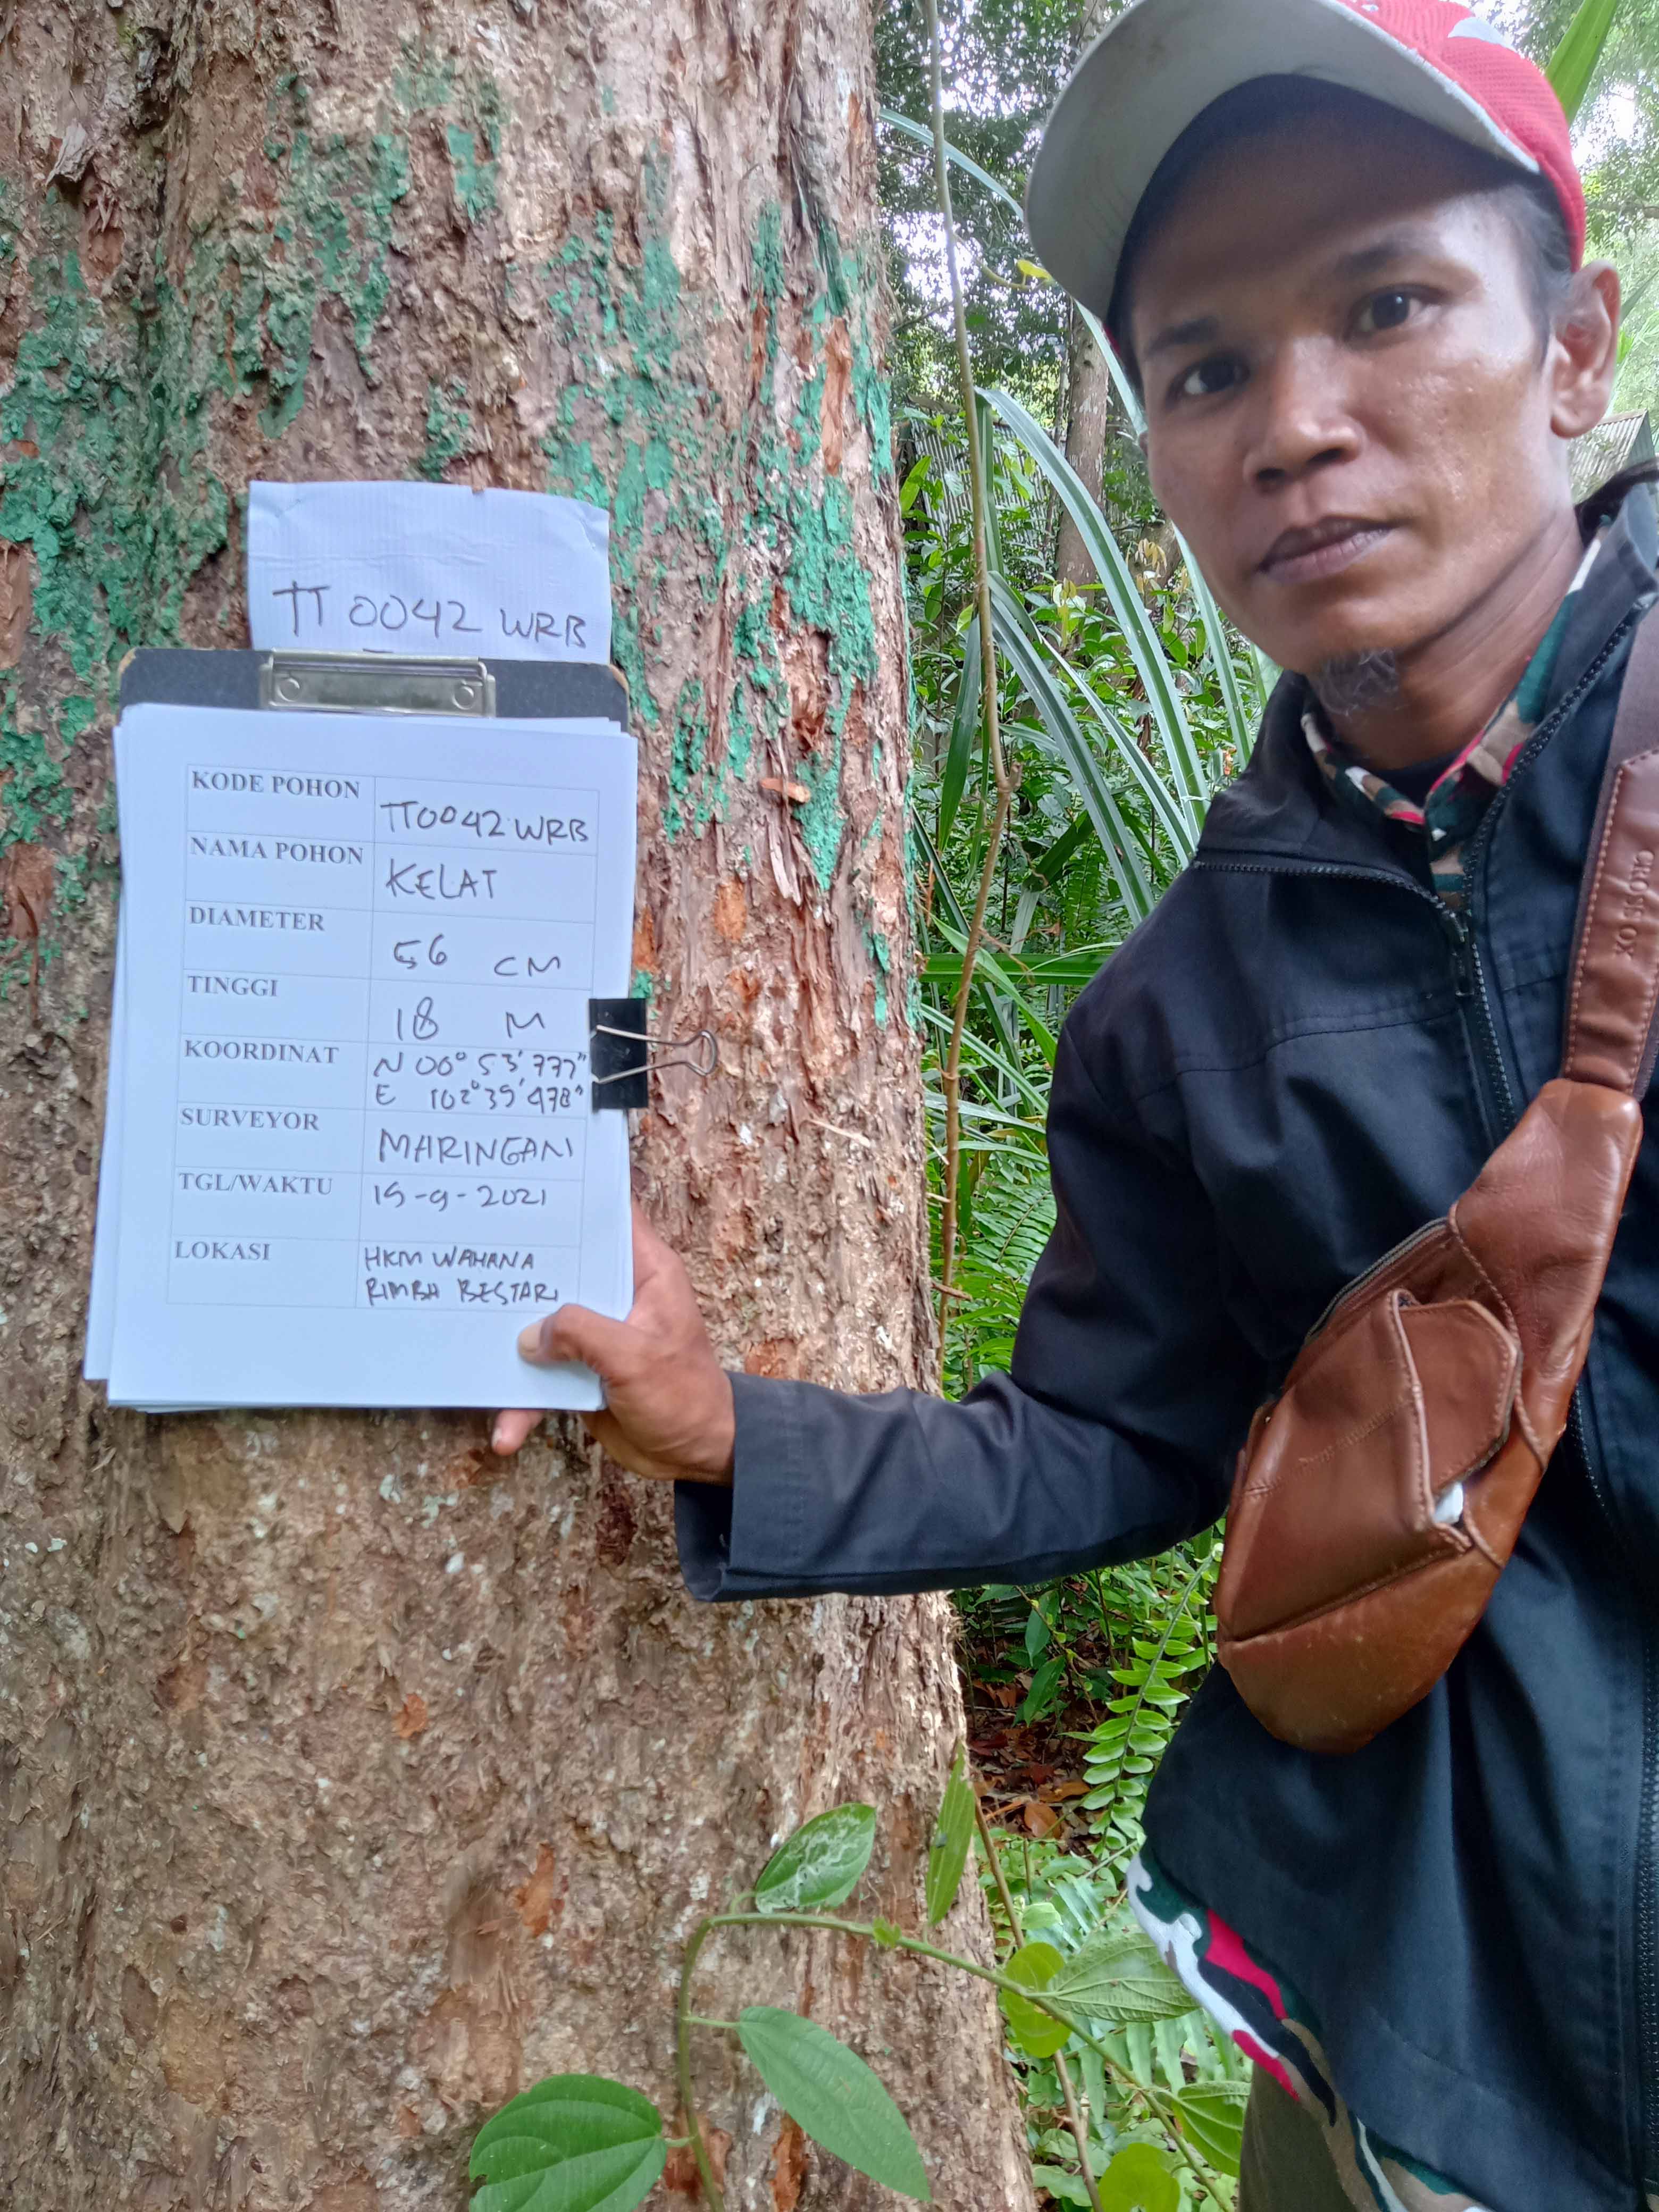 TT 0042 WRB
KODE POHON TT0042 WRB
NAMA POHON KELAT
DIAMETER 56 CM
TINGGI 18 M
KOORDINAT N 00° 53' 777"
E 102° 39' 478"
SURVEYOR MARINGAN
TGL/WAKTU 15-9-2021
LOKASI HKM WAHANA
RIMBA BESTARI
CROSS OX